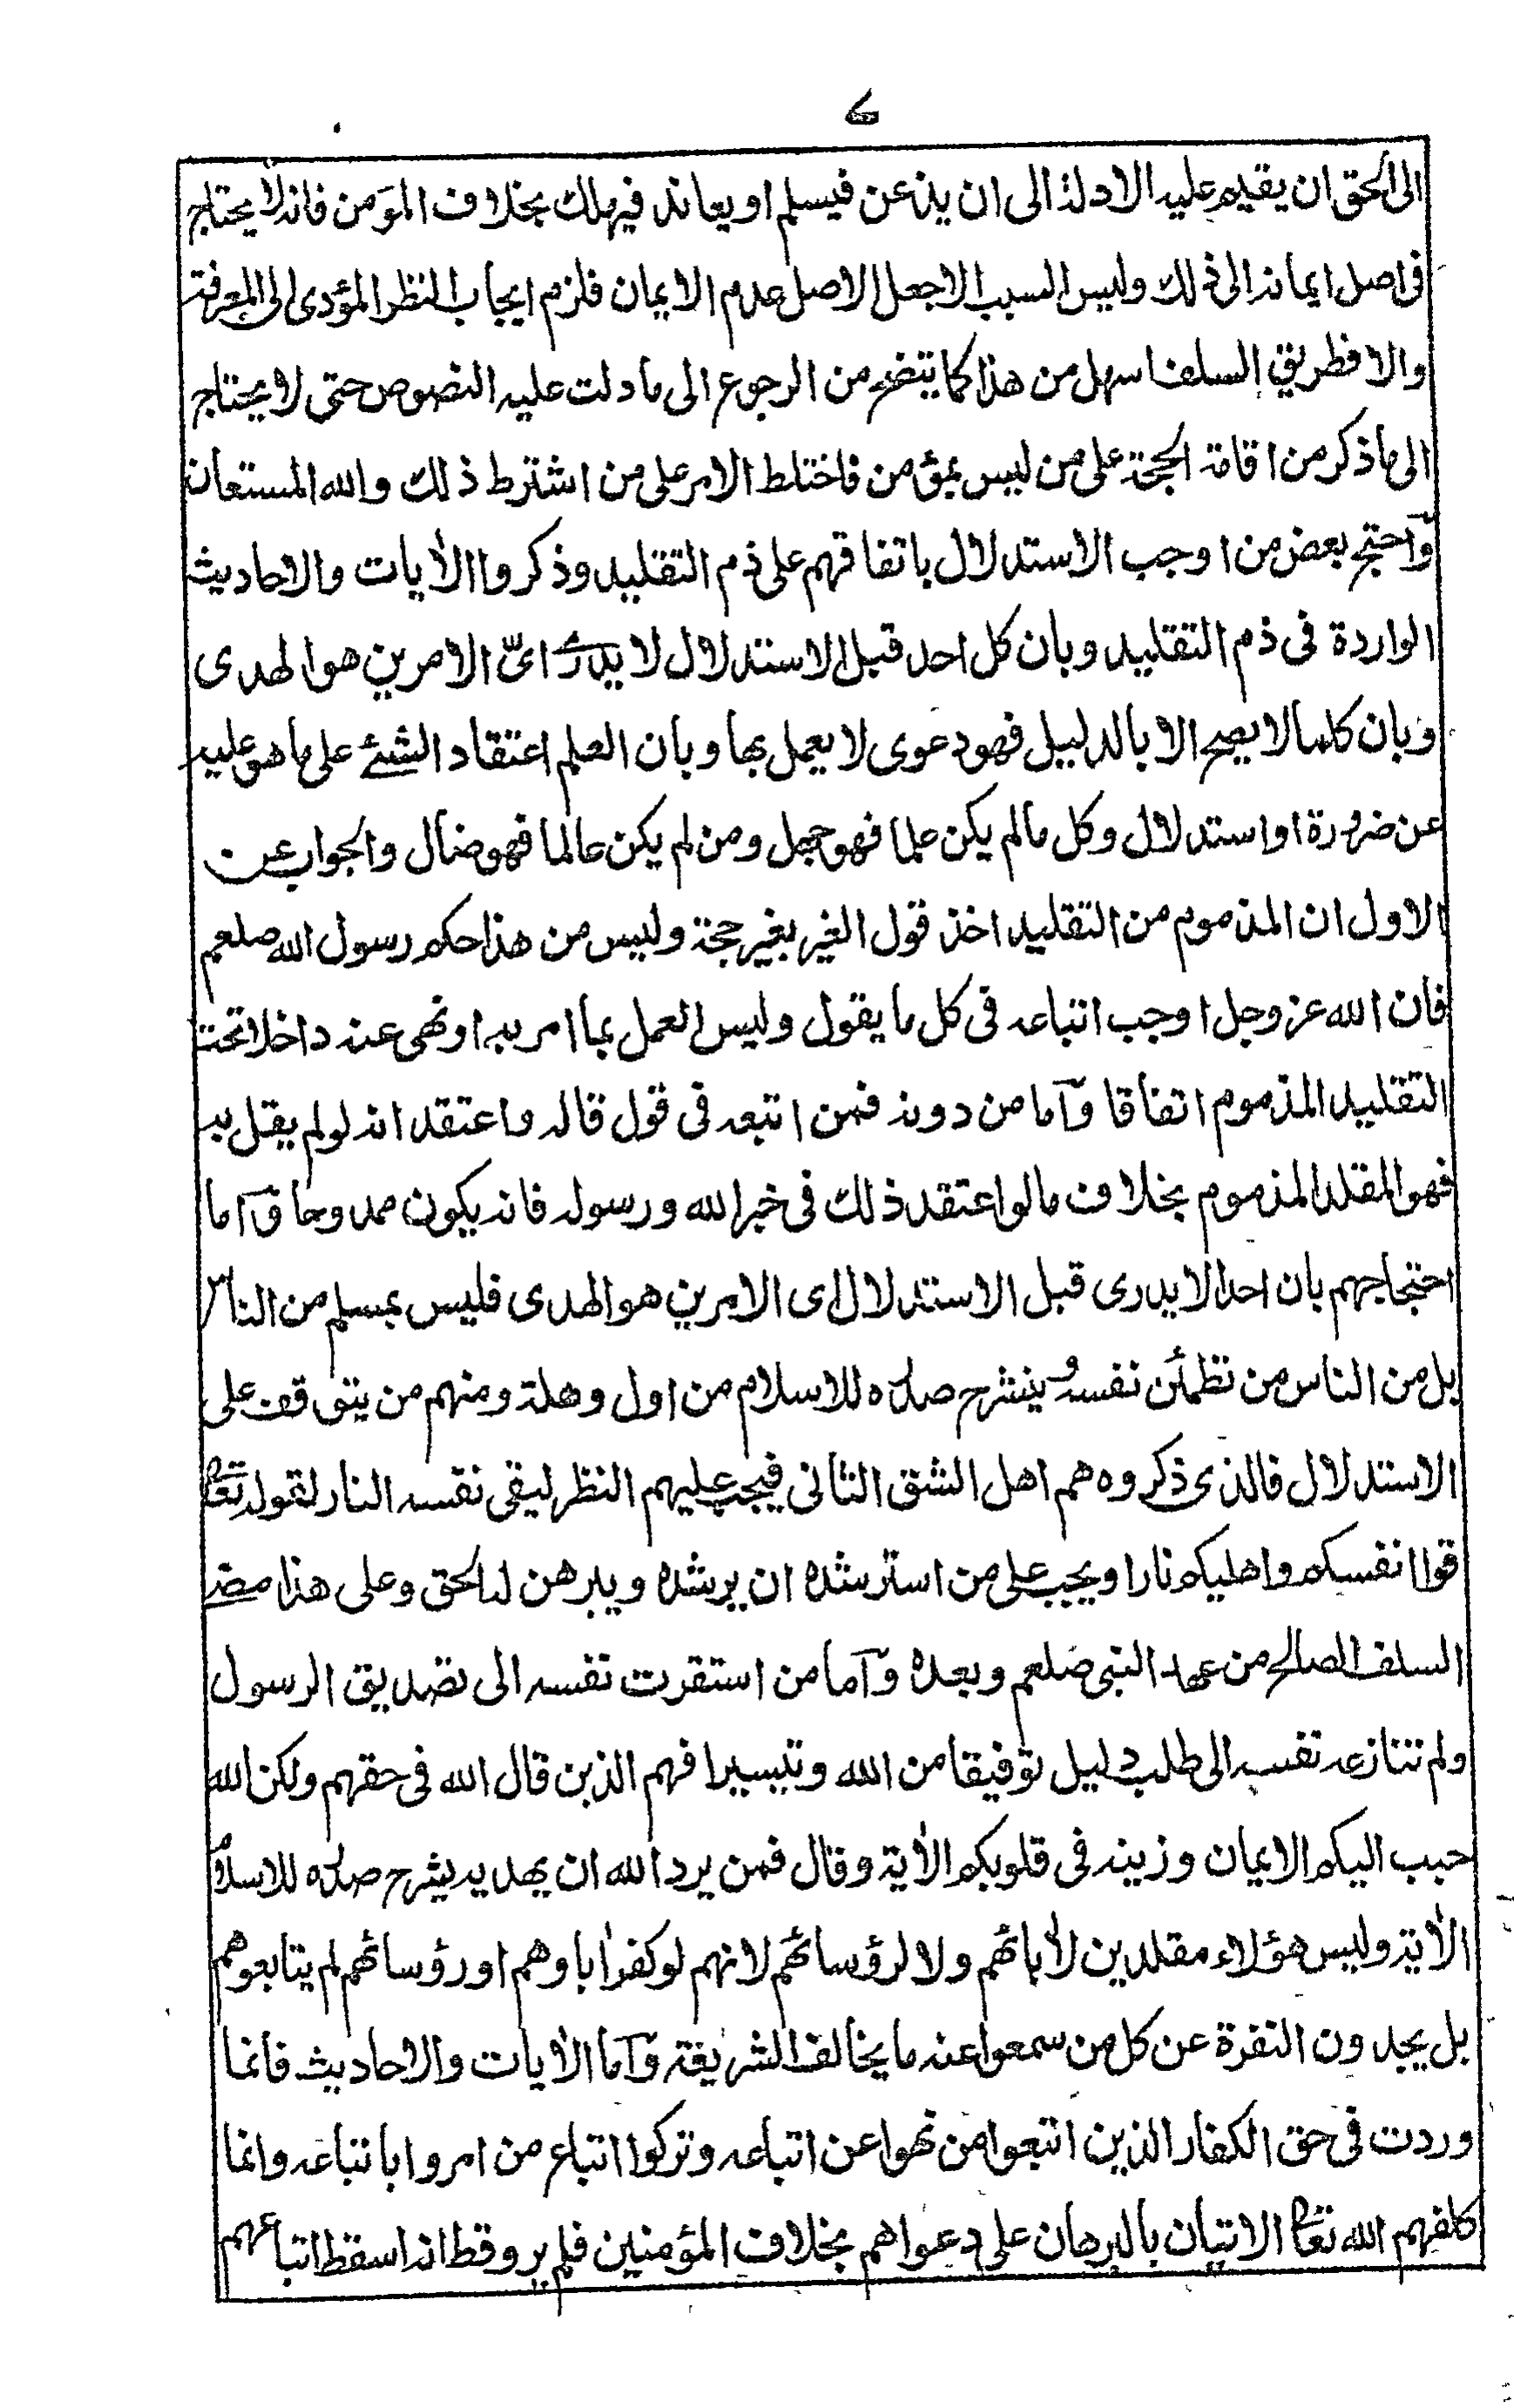 ے
الى الحق ان يقيم عليه الادلة الى ان يذعن فيسلم او يعاند فيهلك بخلاف المؤمن فانه لا يحتاج
فى اصل ايمانه الى ذلك وليس السبب الا جعل الاصل عدم الايمان فلزم ايجاب النظر المؤدى الى المعرفة
والا فطريق السلف اسهل من هذا كما يتضح من الرجوع الى ما دلت عليه النصوص حتى لا يحتاج
الى ما ذكر من اقامة الحجة على من ليس بمؤمن فاختلط الامر على من اشترط ذلك والله المستعان
وآحتج بعض من اوجب الاستدلال باتفاقهم على ذم التقليد وذكروا الاٰيات والاحاديث
الواردة فى ذم التقليد وبان كل احد قبل الاستدلال لا يدرى اىّ الامرين هو الهدى
وبان كلما لا يصح الا بالدليل فهو دعوى لا يعمل بها وبان العلم اعتقاد الشئ على ما هو عليه
عن ضرورة او استدلال وكل ما لم يكن علما فهو جهل ومن لم يكن عالما فهو ضال والجواب عن
الاول ان المذموم من التقليد اخذ قول الغير بغير حجة وليس من هذا حكم رسول الله صلعم
فان الله عز وجل اوجب اتباعه فى كل ما يقول وليس العمل بما امر به او نهى عنه داخلا تحت
التقليد المذموم اتفاقا وآما من دونه فمن اتبعه فى قول قاله واعتقد انه لو لم يقل به
فهو المقلد المذموم بخلاف ما لو اعتقد ذلك فى خبر الله ورسوله فانه يكون ممدوحا وآما
احتجاجهم بان احدا لا يدرى قبل الاستدلال اى الامرين هو الهدى فليس بمسلم من الناس
بل من الناس من تطمئن نفسه وينشرح صدره للاسلام من اول وهلة ومنهم من يتوقف على
الاستدلال فالذى ذكروه هم اهل الشق الثانى فيجب عليهم النظر ليقى نفسه النار لقوله تعا
قوا انفسكم واهليكم نارا ويجب على من استرشده ان يرشده ويبرهن له الحق وعلى هذا مضے
السلف الصالح من عهد النبى صلعم وبعده وآما من استقرت نفسه الى تصديق الرسول
ولم تنازعه نفسه الى طلب دليل توفيقا من الله وتيسيرا فهم الذين قال الله فى حقهم ولكن الله
حبب اليكم الايمان وزينه فى قلوبكم الاٰية وقال فمن يرد الله ان يهديه يشرح صدره للاسلام
الاٰية وليس هؤلاء مقلدين لاٰبائهم ولا لرؤسائهم لانهم لو كفر اٰباوهم او رؤسائهم لم يتابعوهم
بل يجدون النفرة عن كل من سمعوا عنه ما يخالف الشريعة وآما الاٰيات والاحاديث فانما
وردت فى حق الكفار الذين اتبعوا من نهوا عن اتباعه وتركوا اتباع من امروا باتباعه وانما
كلفهم الله تعا الاتيان بالبرهان على دعواهم بخلاف المؤمنين فلم يرو قط انه اسقط اتباعهم